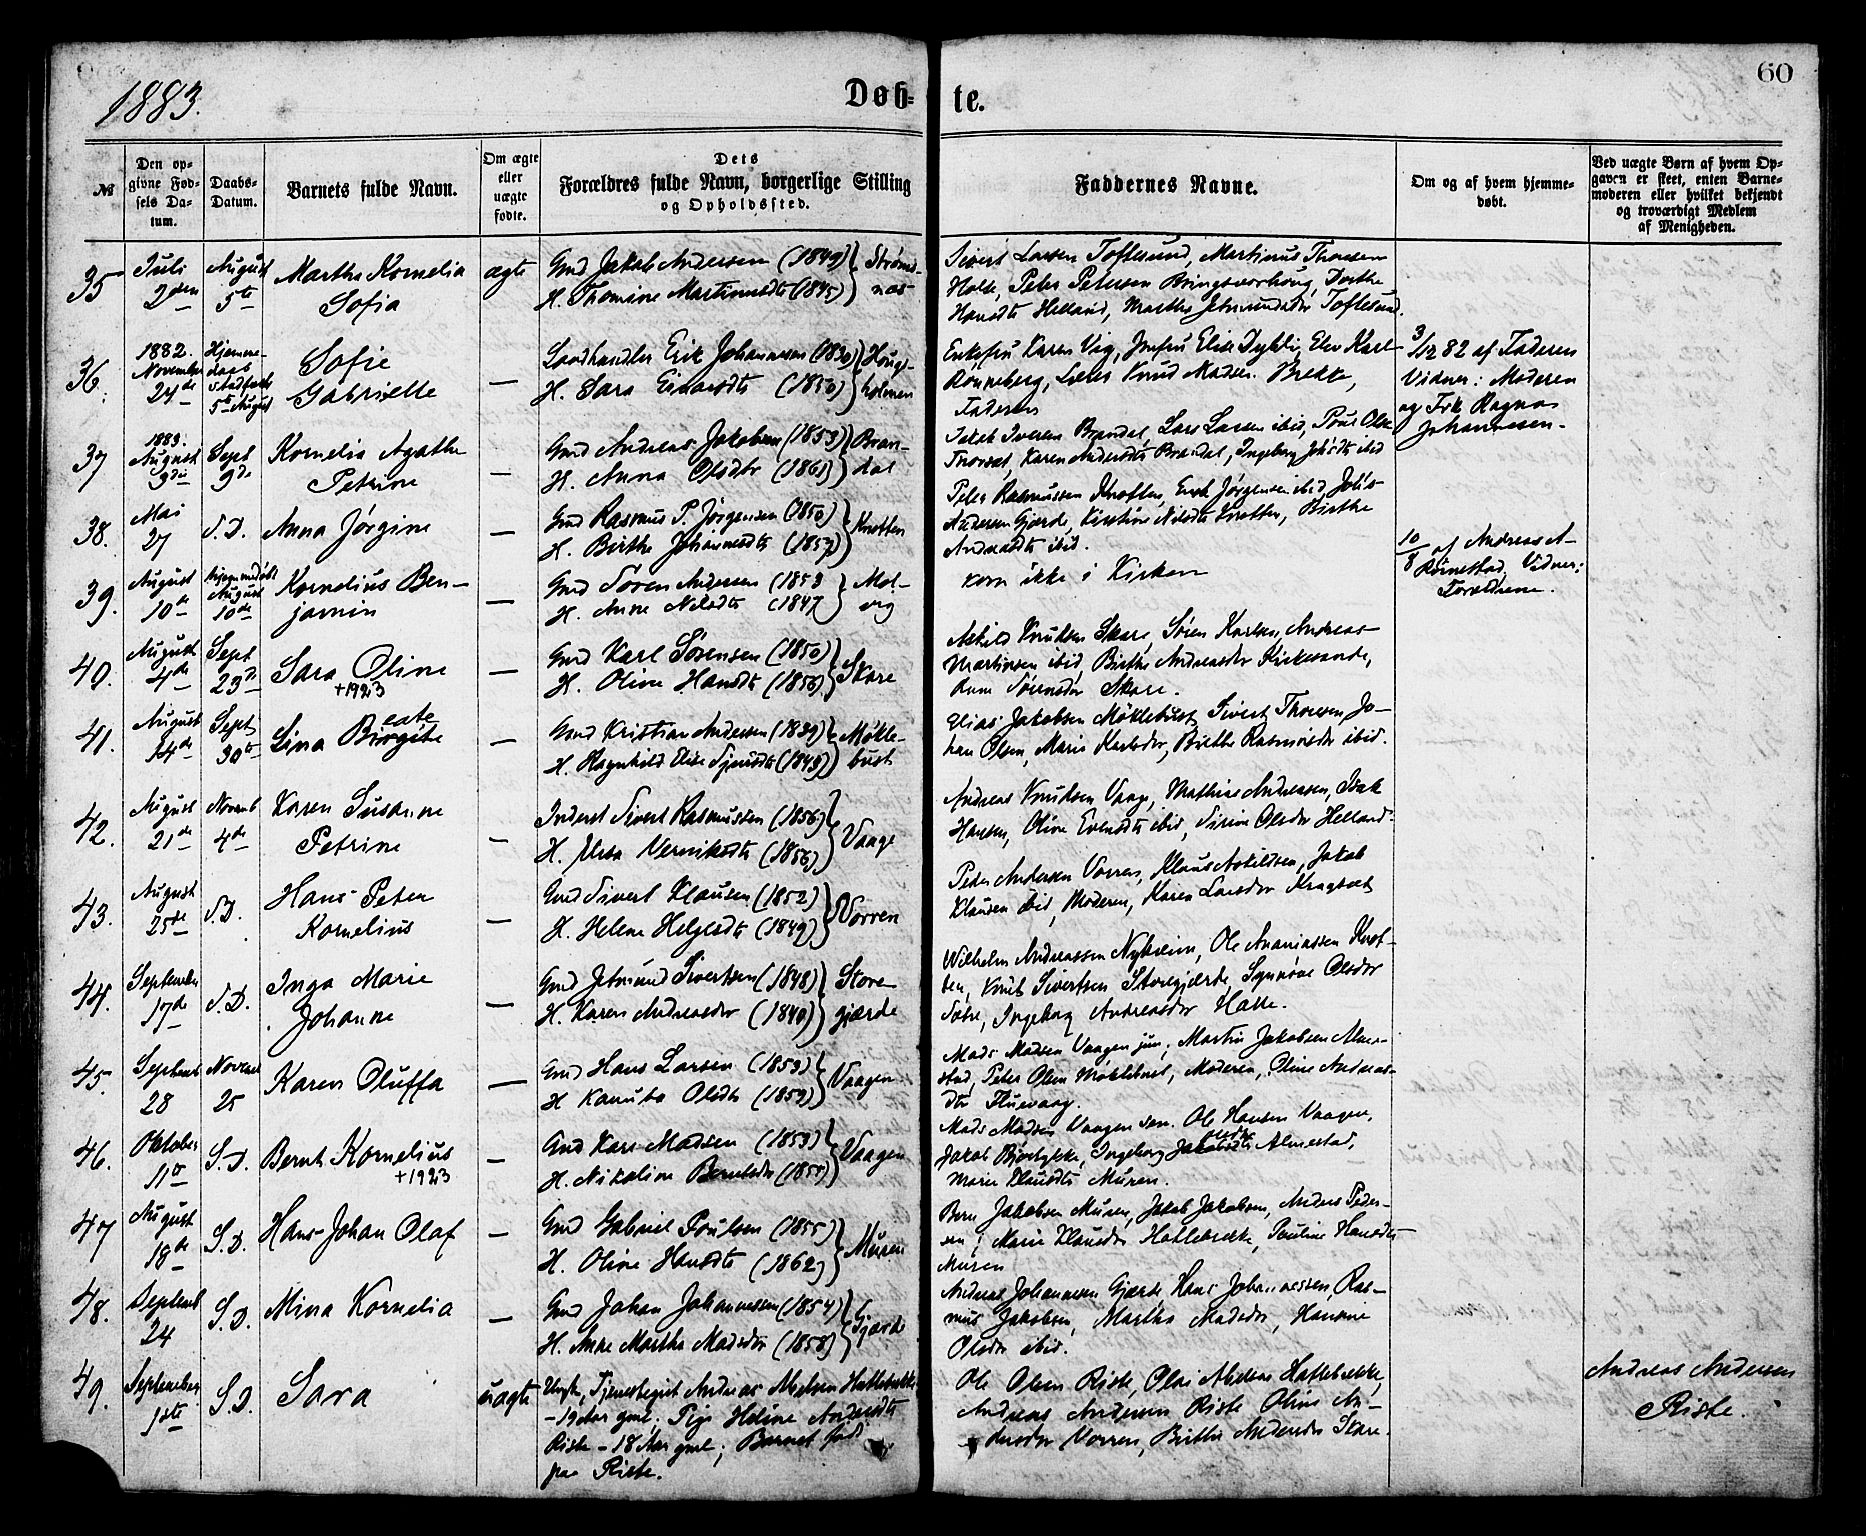 60
1883.
Døb- te.
№
Den opgivne Fødsels Datum.
Daabs-Datum.
Barnets fulde Navn.
Om ægte eller uægte fødte.
Dets Forældres fulde Navn, borgerlige Stilling og Opholdssted.
Faddernes Navne.
Om og af hvem hjemmedøbt.
Ved uægte Børn af hvem Opgaven er skeet, enten Barnemoderen eller hvilket bekjendt og troværdigt Medlem af Menigheden.
35 Juli 2den August 5te Marthe Kornelia Sofia ægte
Gmd Jakob Andersen (1849) Strømsnæs
H. Thomine Martinusdtr (1845)
Sivert Larsen Toftesund, Martinus Thoresen
Peter Petersen Dorthe
Hansdtr Helland, Marthe Toftesund.
36. 1882. November 24de Hjemmedaab 5te August Sofie Gabrielle —
Landhandler Erik Johannesen (1830) Hougsholmen
H. Sara (1850)
Enkefru Karen Vig, Jomfru Elise Elev Karl
Rønneberg, Knud Madsen Brekke,
Faderen
3/12 82 af Faderen
Vidner: Moderen
og Frk Ragna
Johannesen
37 1883. August 9de Sept 9de Kornelia Agathe Petrine —
Gmd Andreas Jakobsen (1853) Brandal
H. Anna Olsdtr (1861)
Iversen Brandal, Lars Larsen ibid, Poul Olsen
Karen Andersdtr Brandal, Ingeborg ibid
38. Mai 27 S.D. Anna Jørgine —
Gmd Rasmus P. Jørgensen (1850) Knotten
H. Birthe Johannesdtr (1857)
Peter Rasmussen Knotten, Erik Jørgensen ibid,
Andersen Gjerde, Kirstine Nilsdtr Knotten, Birthe
ibid.
39. August 10de hjemmedøbt August 10de Kornelius Benjamin —
Gmd Søren Andersen (1853 Molvig
H. Anne Nilsdtr (1847)
kom ikke i Kirken
10/8 af Andreas A.
Rønnestad. Vidner:
Forældrene.
40. August 4de Sept 23de Sara Oline
+1923
—
Gmd Karl Sørensen (1850) Skare
H. Oline Hansdtr (1856)
Askild Knudsen Skare, Søren Karlsen, Andreas
Martinsen ibid, Birthe Andreasdtr Kirkesande,
Sørensdtr Skare.
41. August 14de Sept 30te Lina Birgite
eate
—
Gmd Kristian Andersen (1839) Møklebust
H. Ragnhild Elise (1843)
Elias Jakobsen Møklebust, Sivert Thoresen, Johan
Olsen, Marie Karlsdtr, Birthe Rasmusdtr ibid.
42. August 21de Novemb 4de Karen Susanne Petrine —
Inderst Sivert Rasmussen (1856) Vaage
H. (1856)
Andreas Knudsen Vaage, Mathias Andreassen, Isak
Hansen, Oline ibid, Olsdtr Helland.
43. August 25de S.D. Hans Peter Kornelius —
Gmd Sivert Klausen (1852) Vorren
H. Helene Helgesdtr (1849)
Peder Andersen Vorren, Klaus Askildsen, Jakob
Klausen ibid, Moderen, Karen Larsdtr
44. September 17de S.D. Inga Marie Johanne —
Gmd Jetmund Sivertsen (1848) Storegjærde
H. Karen Andreasdtr (1840)
Wilhelm Andreassen Ole Ananiassen Knotten,
Knut Sivertsen Storegjærde, Synnøve Olsdtr
Ingeborg Andreasdtr
45 Septemb 28 Novemb 25 Karen Oluffa —
Gmd Hans Larsen (1853) Vaagen
H Kanuta Olsdtr (1859)
Mads Madsen Vaagen jun, Martin Jakobsen Almestad,
Peter Olsen Møklebust, Moderen, Oline Andreasdtr
46. Oktober 11te S.D. Bernt Kornelius
+1923
—
Gmd Karl Madsen (1853) Vaagen
H. Nikoline Berntsdtr (1855)
Mads Madsen Vaagen sen. Ole Hansen Vaagen,
Jakob Ingeborg Almestad,
Marie Klausdtr Muren.
47 August 18de S.D. Hans Johan Olaf —
Gmd Gabriel Poulsen (1855) Muren
H. Oline Hansdtr (1862)
Jakobsen Muren, Jakob Jakobsen, Anders Pedersen,
Marie Klausdtr Hatlebrekke, Pauline Hansdtr
Muren
48. Septemb 24 S.D. Mina Kornelia —
Gmd Johan Johannesen (1854) Gjærde
H. Anne Martha Madsdtr (1858)
Andreas Johannesen Gjærde Hans Johannessen, Rasmus
Jakobsen, Martha Madsdtr, Hansine
Olsdtr ibid.
49. September 1ste S.D. Sara uægte
Ungk, Tjenestegut Andreas Hatlebrekke
– 19 Aar gml. Pige Heline Andersdtr
Riste – 18 Aar gml; Barnet født
paa Riste.
Ole Olsen Riste, Hatlebrekke,
Andreas Andersen Riste Oline Andersdtr
Vorren, Birthe Skare.
Andreas Andersen
Riste.